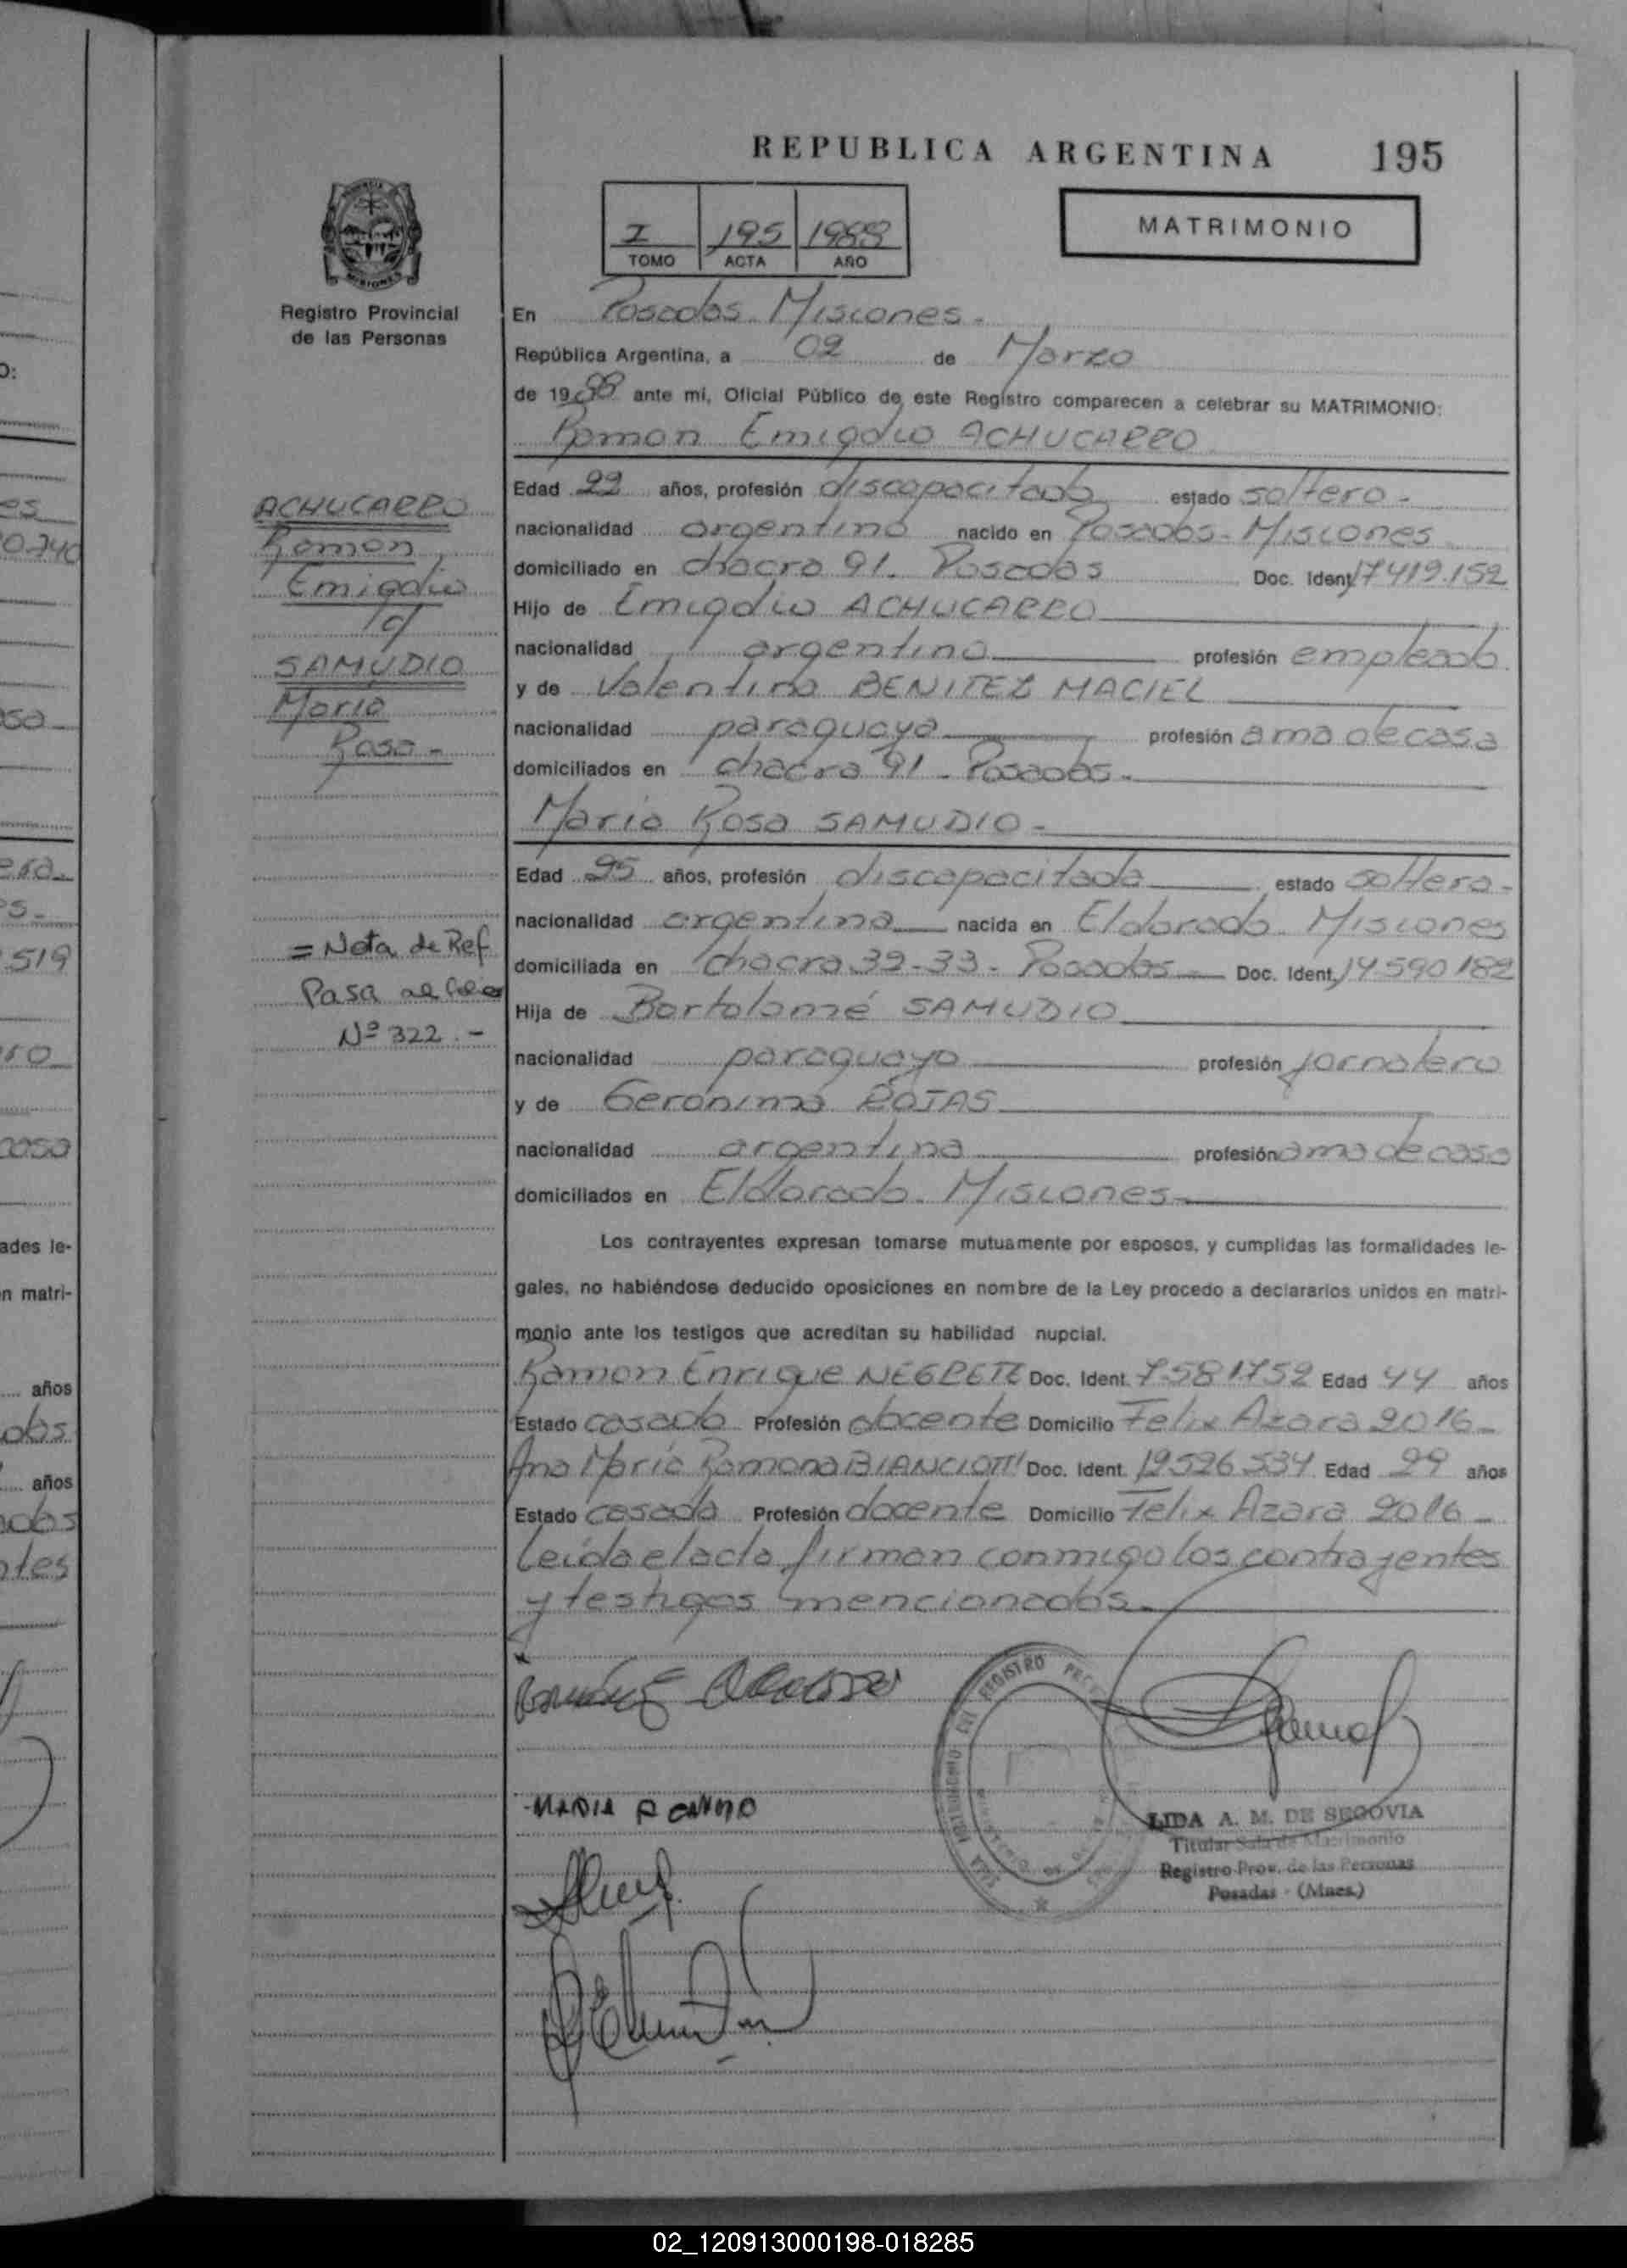 REPUBLICA ARGENTINA 195
I 195 1988
TOMO ACTA AÑO
MATRIMONIO
Registro Provincial
de las Personas
En Posadas Misiones.
República Argentina, a 02 de Marzo
de 1988 ante mi, Oficial Público de este Registro comparecen a celebrar su MATRIMONIO:
Ramon Emigdio ACHUCARRO
Edad 22 años, profesión discapacitado estado soltero.
nacionalidad argentino nacido en Posadas-Misiones
domiciliado en chacra 91. Posadas Doc. Ident. 17419.152
Hijo de Emigdio ACHUCARRO
nacionalidad argentino profesión empleado
y de Valentina BENITEZ MACIEL
nacionalidad paraguaya profesión ama de casa
domiciliados en chacra 91 - Posadas.
Maria Rosa SAMUDIO-
Edad 25 años, profesión discapacitada estado soltera-
nacionalidad argentina nacida en Eldorado Misiones
domiciliada en chacra 32-33- Posadas Doc. Ident. 14590182
Hija de Bartolomé SAMUDIO
nacionalidad paraguayo profesión jornalero
y de Gerónima ROJAS
nacionalidad argentina profesión ama de casa
domiciliados en Eldorado. Misiones
Los contrayentes expresan tomarse mutuamente por esposos, y cumplidas las formalidades le-
gales, no habiéndose deducido oposiciones en nombre de la Ley procedo a declararlos unidos en matri-
monio ante los testigos que acreditan su habilidad nupcial.
Ramon Enrique NEGRETE Doc. Ident. 7581752 Edad 44 años
Estado casado Profesión docente Domicilio Felix Azara 2016-
Ana Maria Ramona BIANCIOTTI Doc. Ident. 12526534 Edad 29 años
Estado casada Profesión docente Domicilio Felix Azara 2016-
Leida el acta firman conmigo los contrayentes
y testigos mencionados.
LIDA A. M. DE SEGOVIA
Titular Sala de Matrimonio
Registro Prov. de las Personas
Posadas - (Mnes.)
ACHUCARRO
Ramon
Emigdio
c/
SAMUDIO
Maria
Rosa-
= Nota de Ref
Pasa al folio
Nº 322.-
02_120913000198-018285